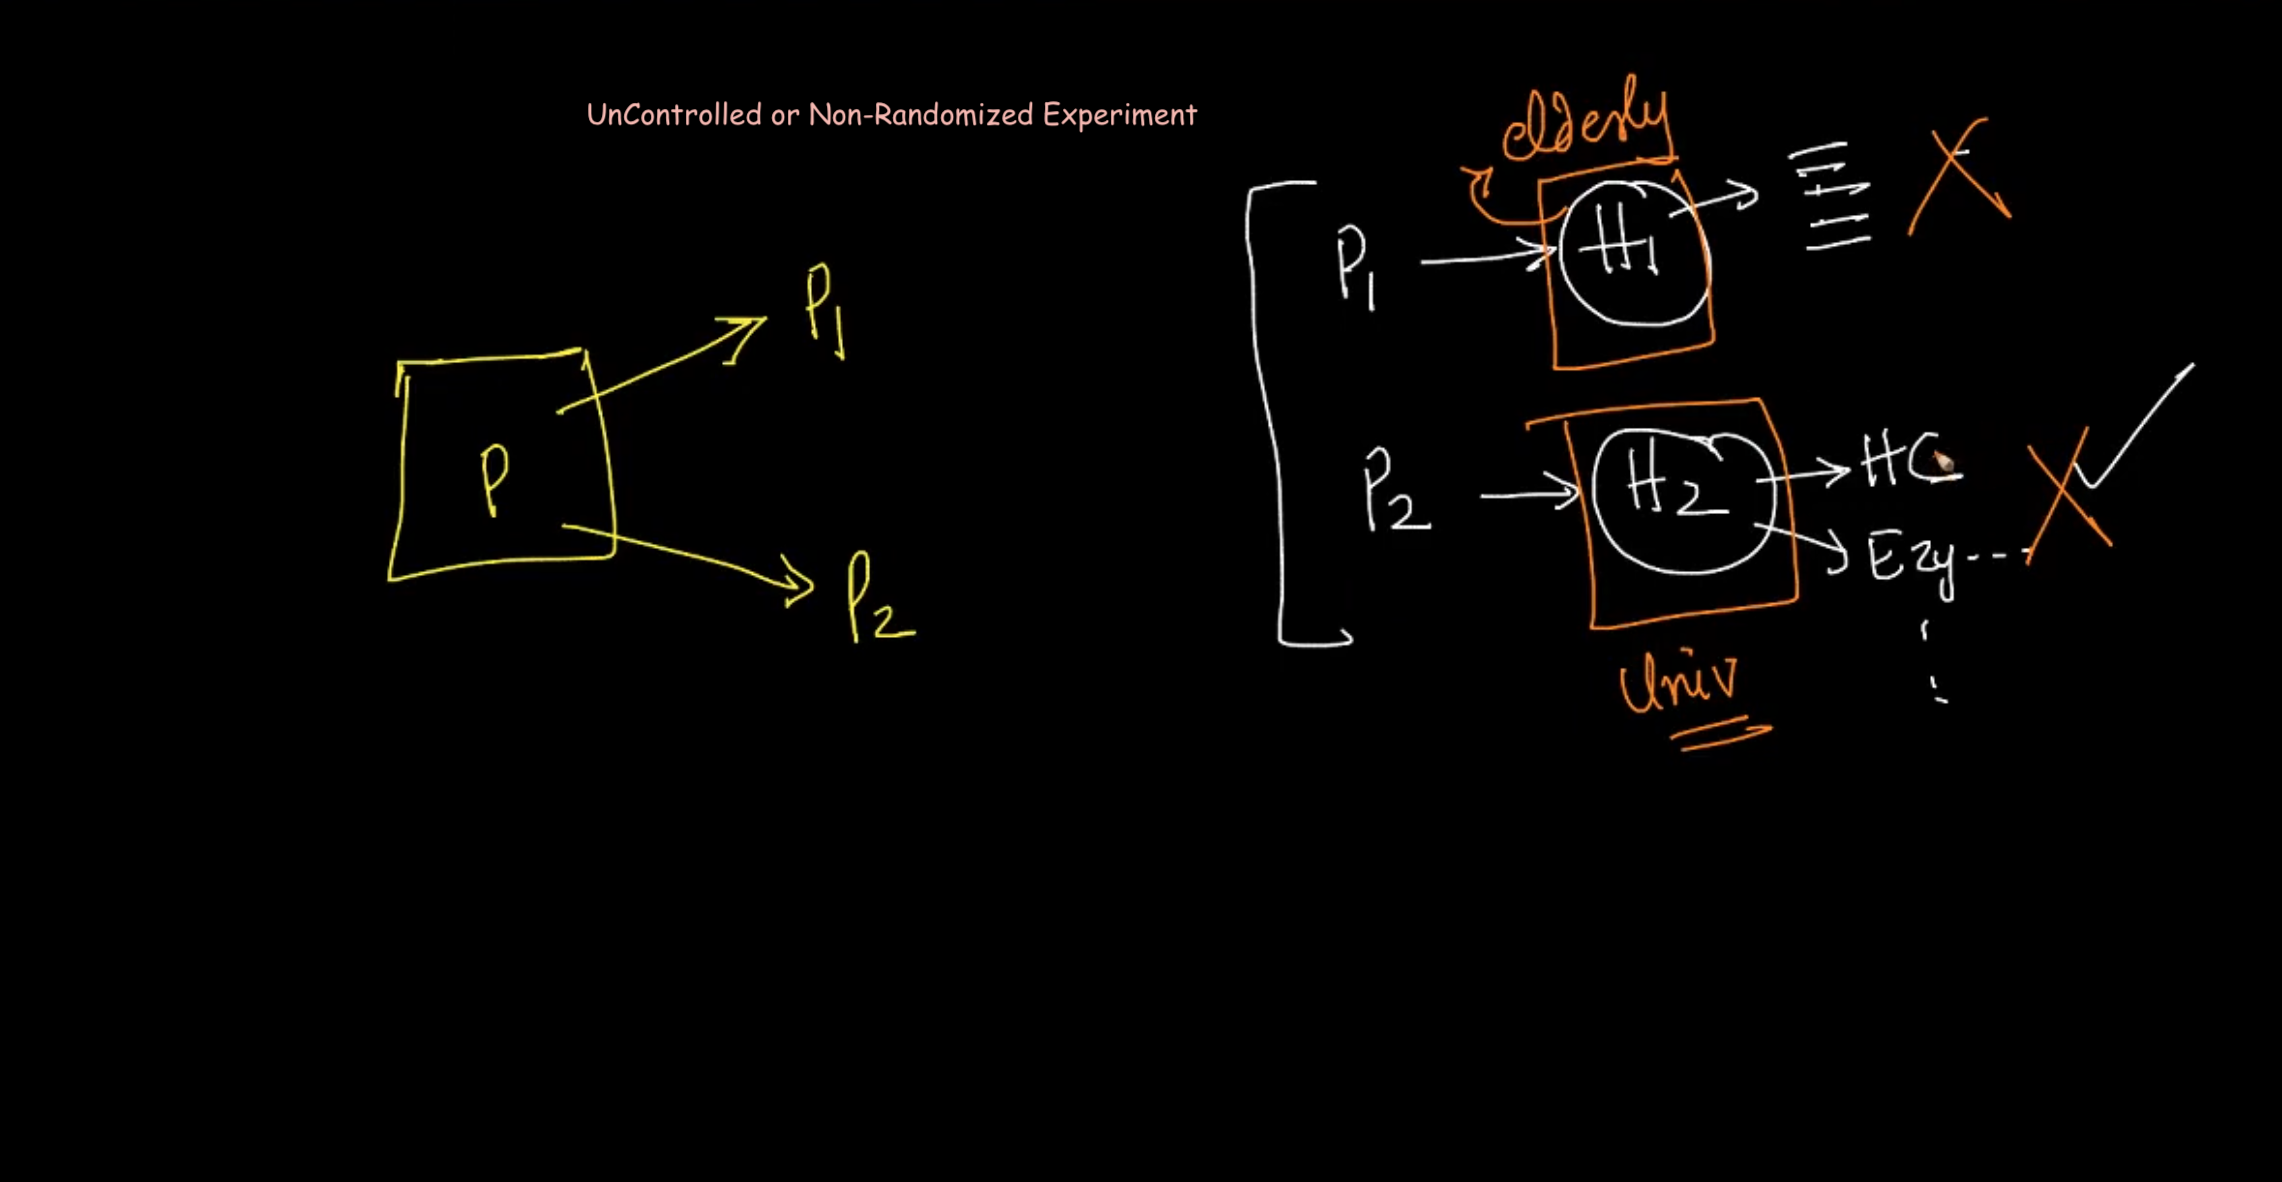 UnControlled or Non-Randomized Experiment
P
P1
P2
elderly
P1
H1
P2
H2
HC
Ezy---
Univ